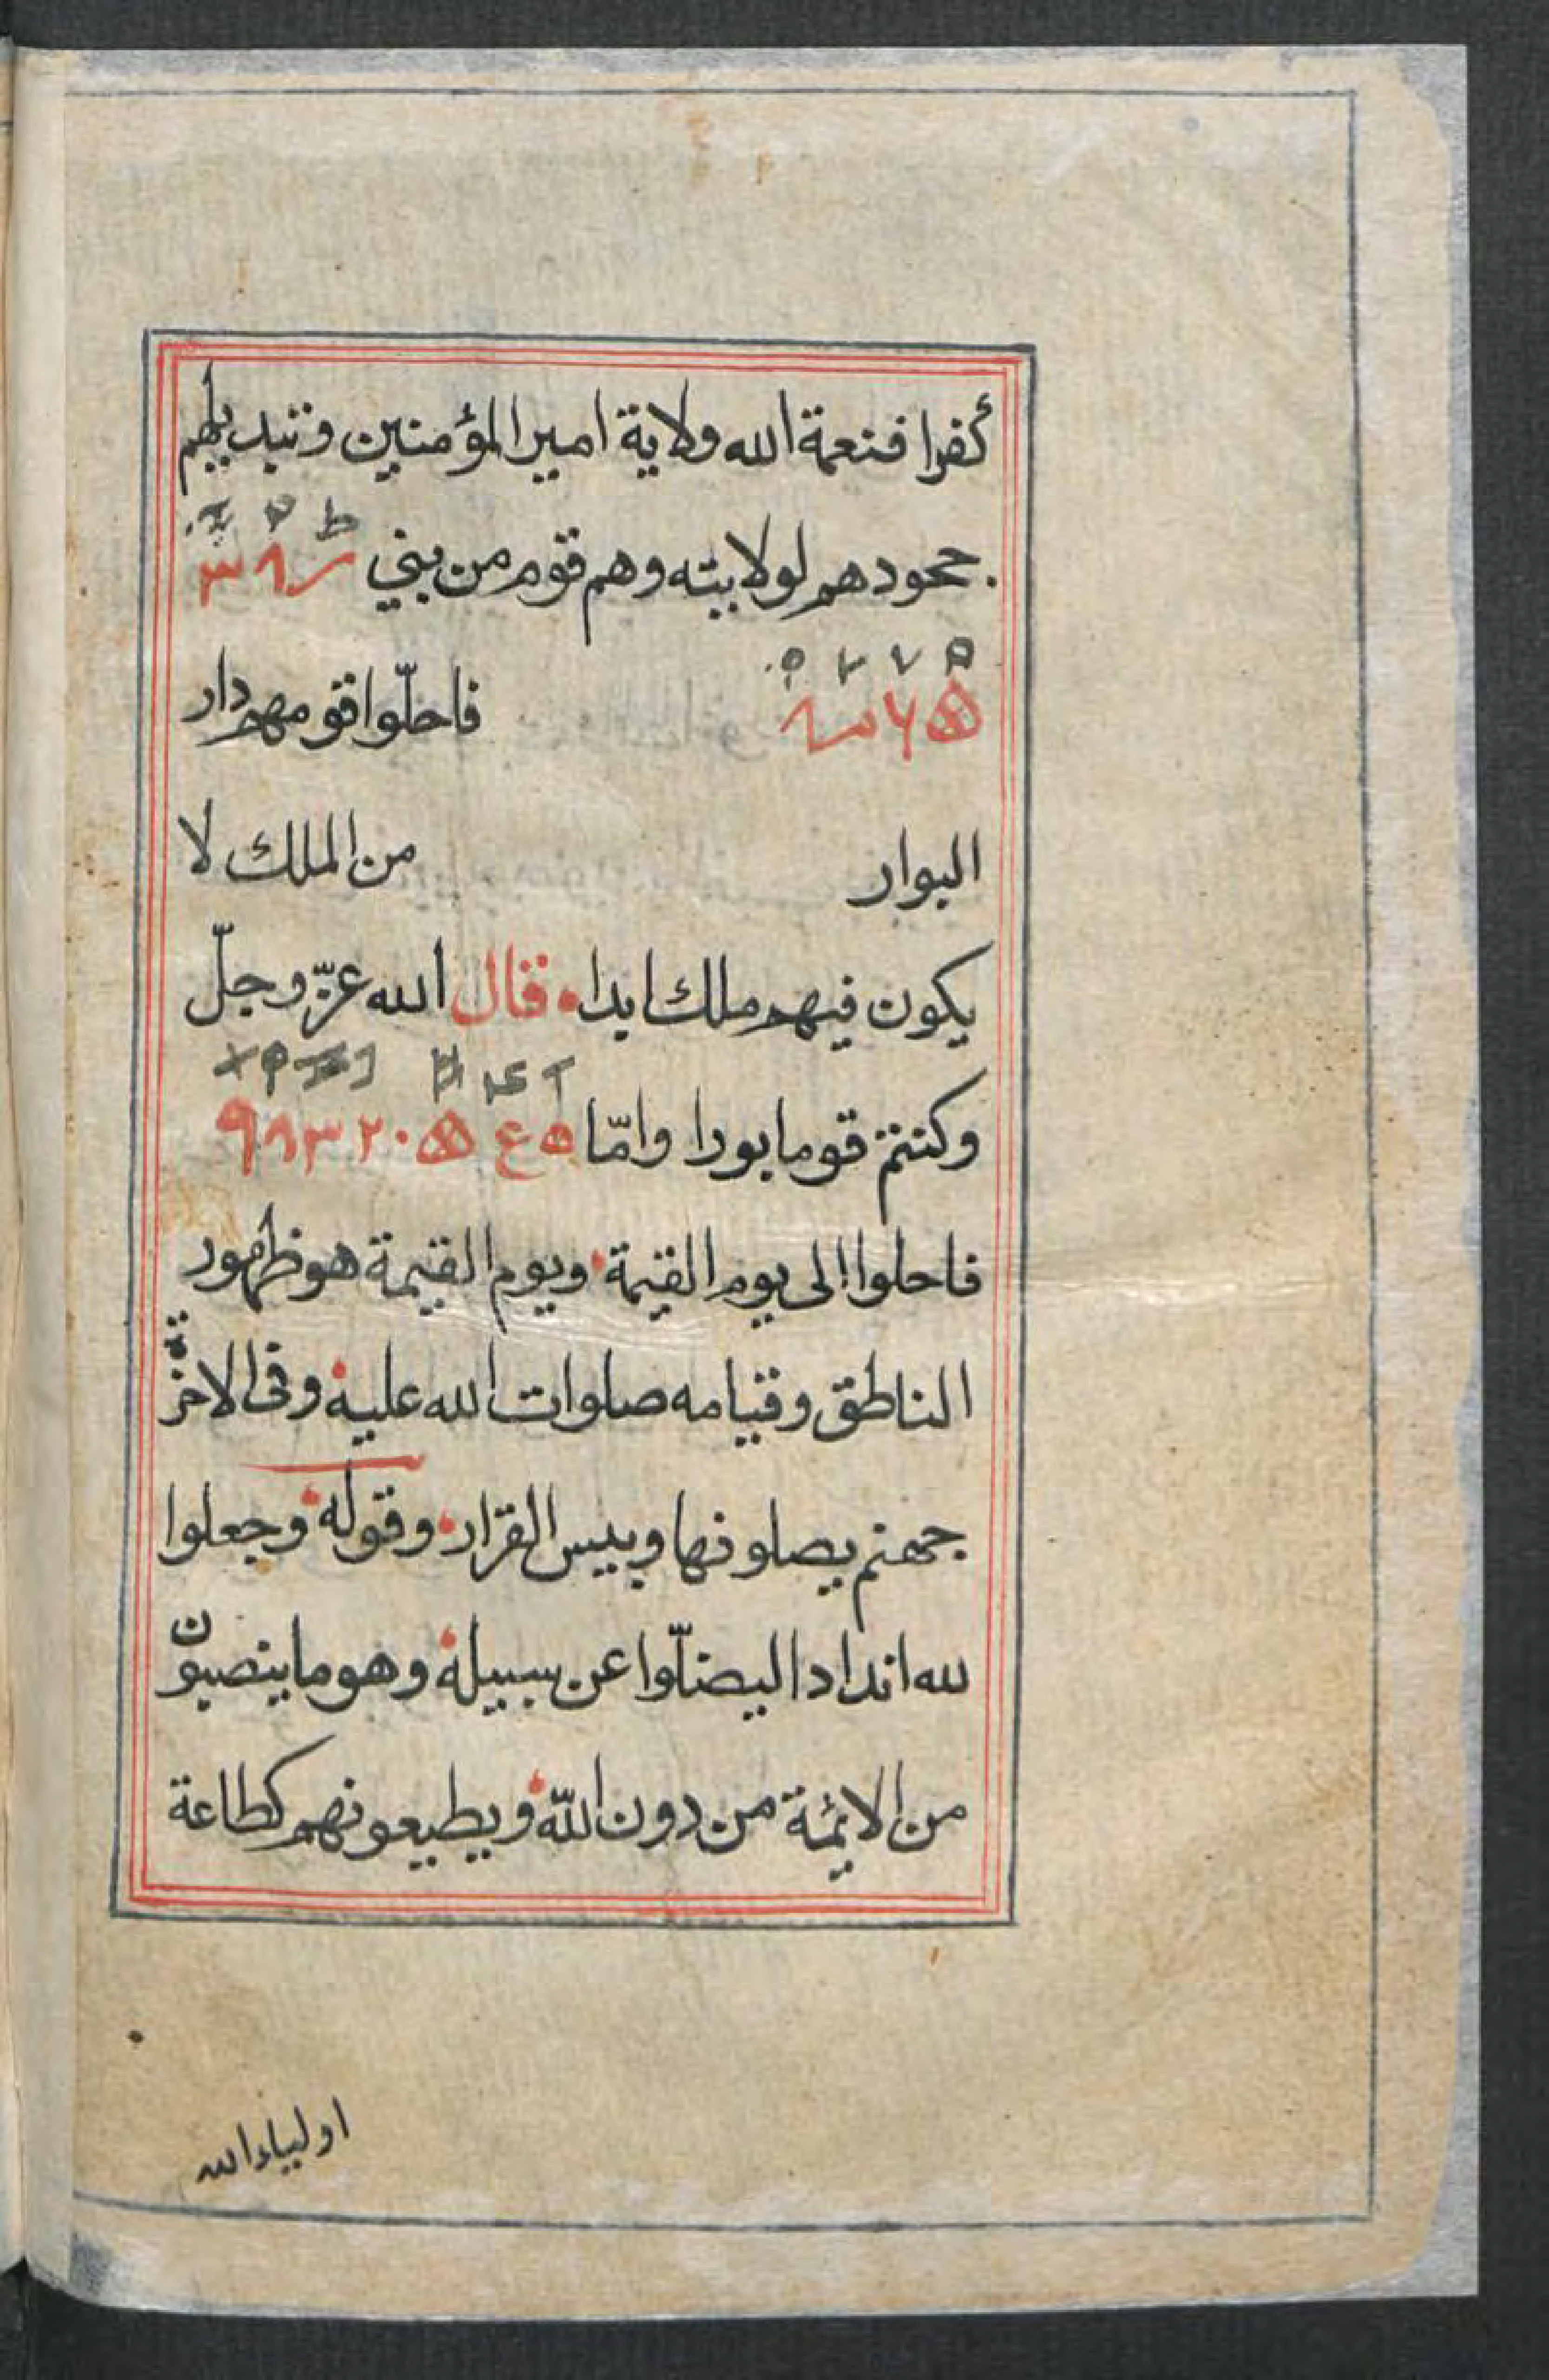 كفرا فنعمة الله ولاية امير المؤمنين وتبديلهم
جحودهم لولايته وهم قوم من بني
فاحلّوا قومهم دار
البوار من الملك لا
يكون فيهم ملك ابدا قال الله عزّ وجلّ
وكنتم قوما بورا وامّا
فاحلوا الى يوم القيمة ويوم القيمة هو ظهور
الناطق وقيامه صلوات الله عليه وفى الاخرة
جهنم يصلونها وبيس القرار وقوله وجعلوا
لله اندادا ليضلّوا عن سبيله وهو ما ينصبون
من الايمة من دون اللّه ويطيعونهم كطاعة
اولياء الله